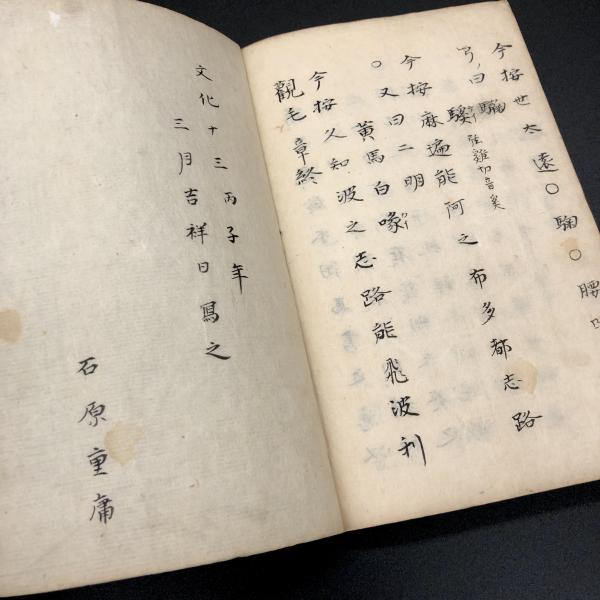 今按世太遠〇騧〇腰
弓曰
今按麻遍能阿之布多都志路
〇又曰二明
黄馬白喙
今按久知波之志路能飛波利
觀毛章終
文化十三丙子年
三月吉祥日寫之
石原重庸